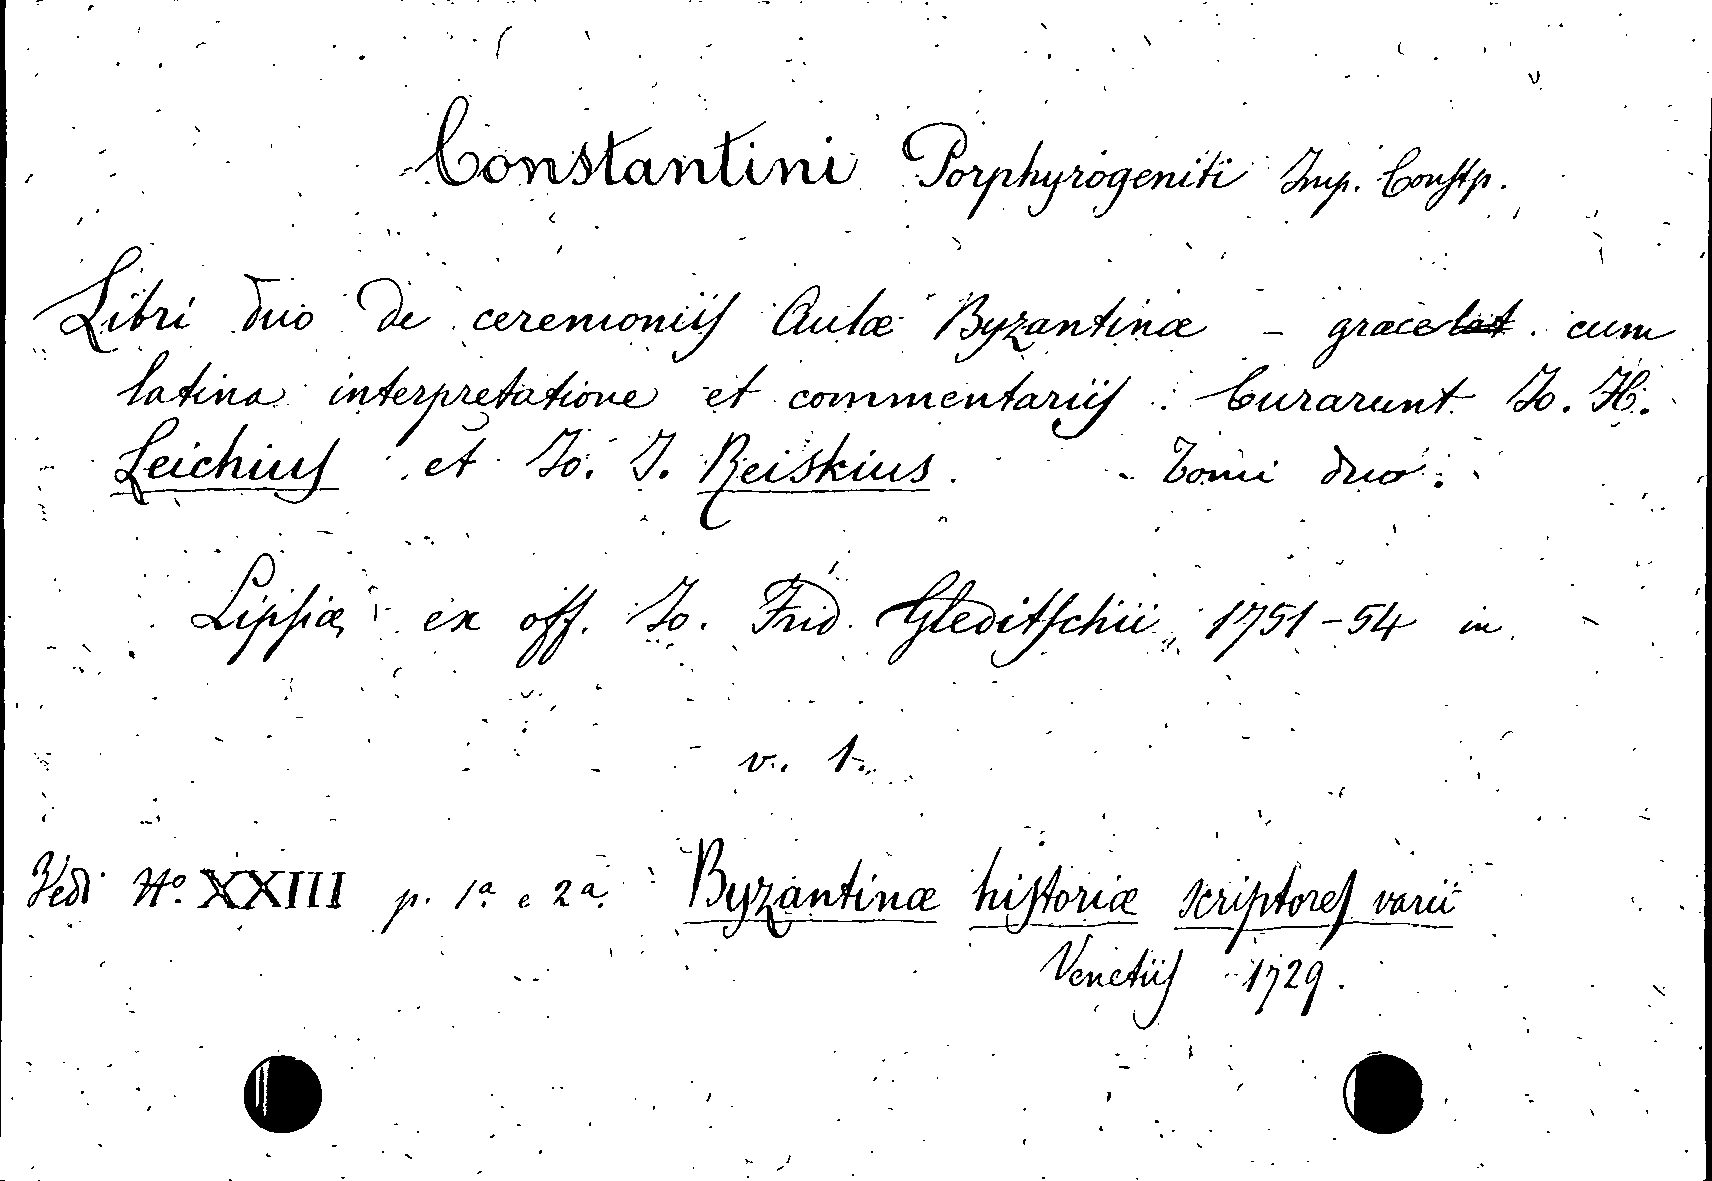 Constantini Porphyrogeniti Imp. Constp.
Libri duo de ceremoniis Aulæ Byzantinæ - græce lat. cum
latina interpretatione et commentariis. Curarunt Jo. H.
Leichius et Jo. J. Reiskius. - Tomi duo.
Lipsiæ, ex off. Jo. Frid. Gleditschii, 1751-54 in
v. 1.
Vedi No. XXIII p. 1a e 2a. Byzantinæ historiæ scriptores varii
Venetiis 1729.